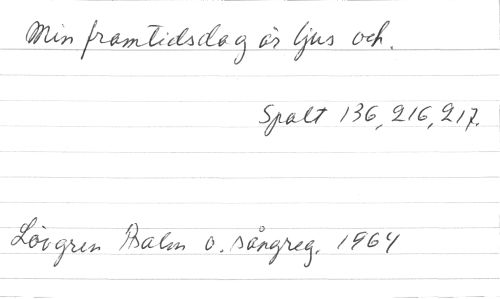 Min framtidsdag är ljus och.
Spalt 136, 216, 217.
Lövgren Psalm o. sångreg. 1964